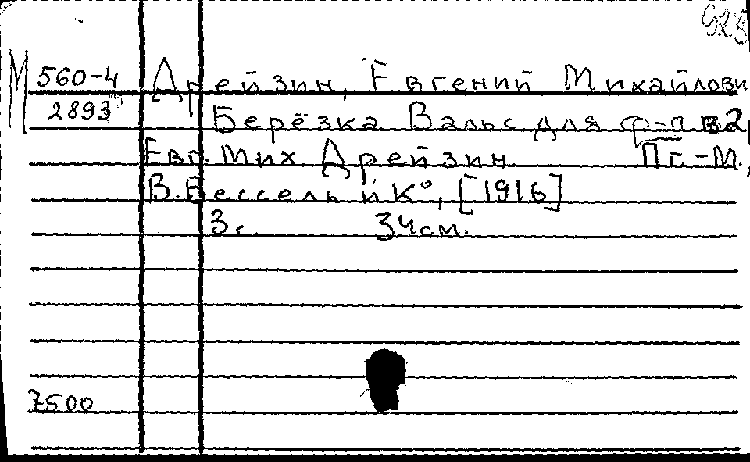 923
М 560-4 Дрейзин, Евгений Михайлови
2893 Берёзка. Вальс для ф-п. в 2
Евг. Мих. Дрейзин. Пг.-М.,
В. Бессель и К°, [1916]
3 с. 34 см.
7500